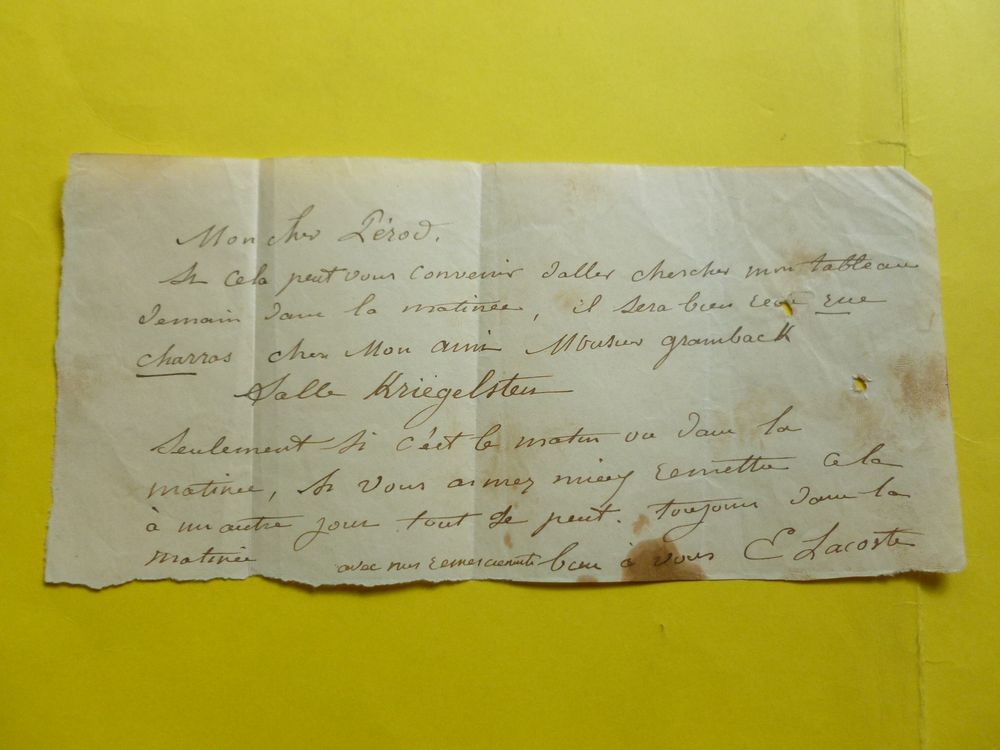 Mon cher Pérod.
Si cela peut vous convenir d'aller chercher mon tableau
demain dans la matinée, il sera bien reçu rue
charras chez Mon ami Monsieur gramback
Salle Kriegelstein
Seulement si c'est le matin ou dans la
matinée, si vous aimez mieux remettre cela
à un autre jour tout se peut. toujours dans la
matinée avec mes remerciements bien à vous E Lacoste